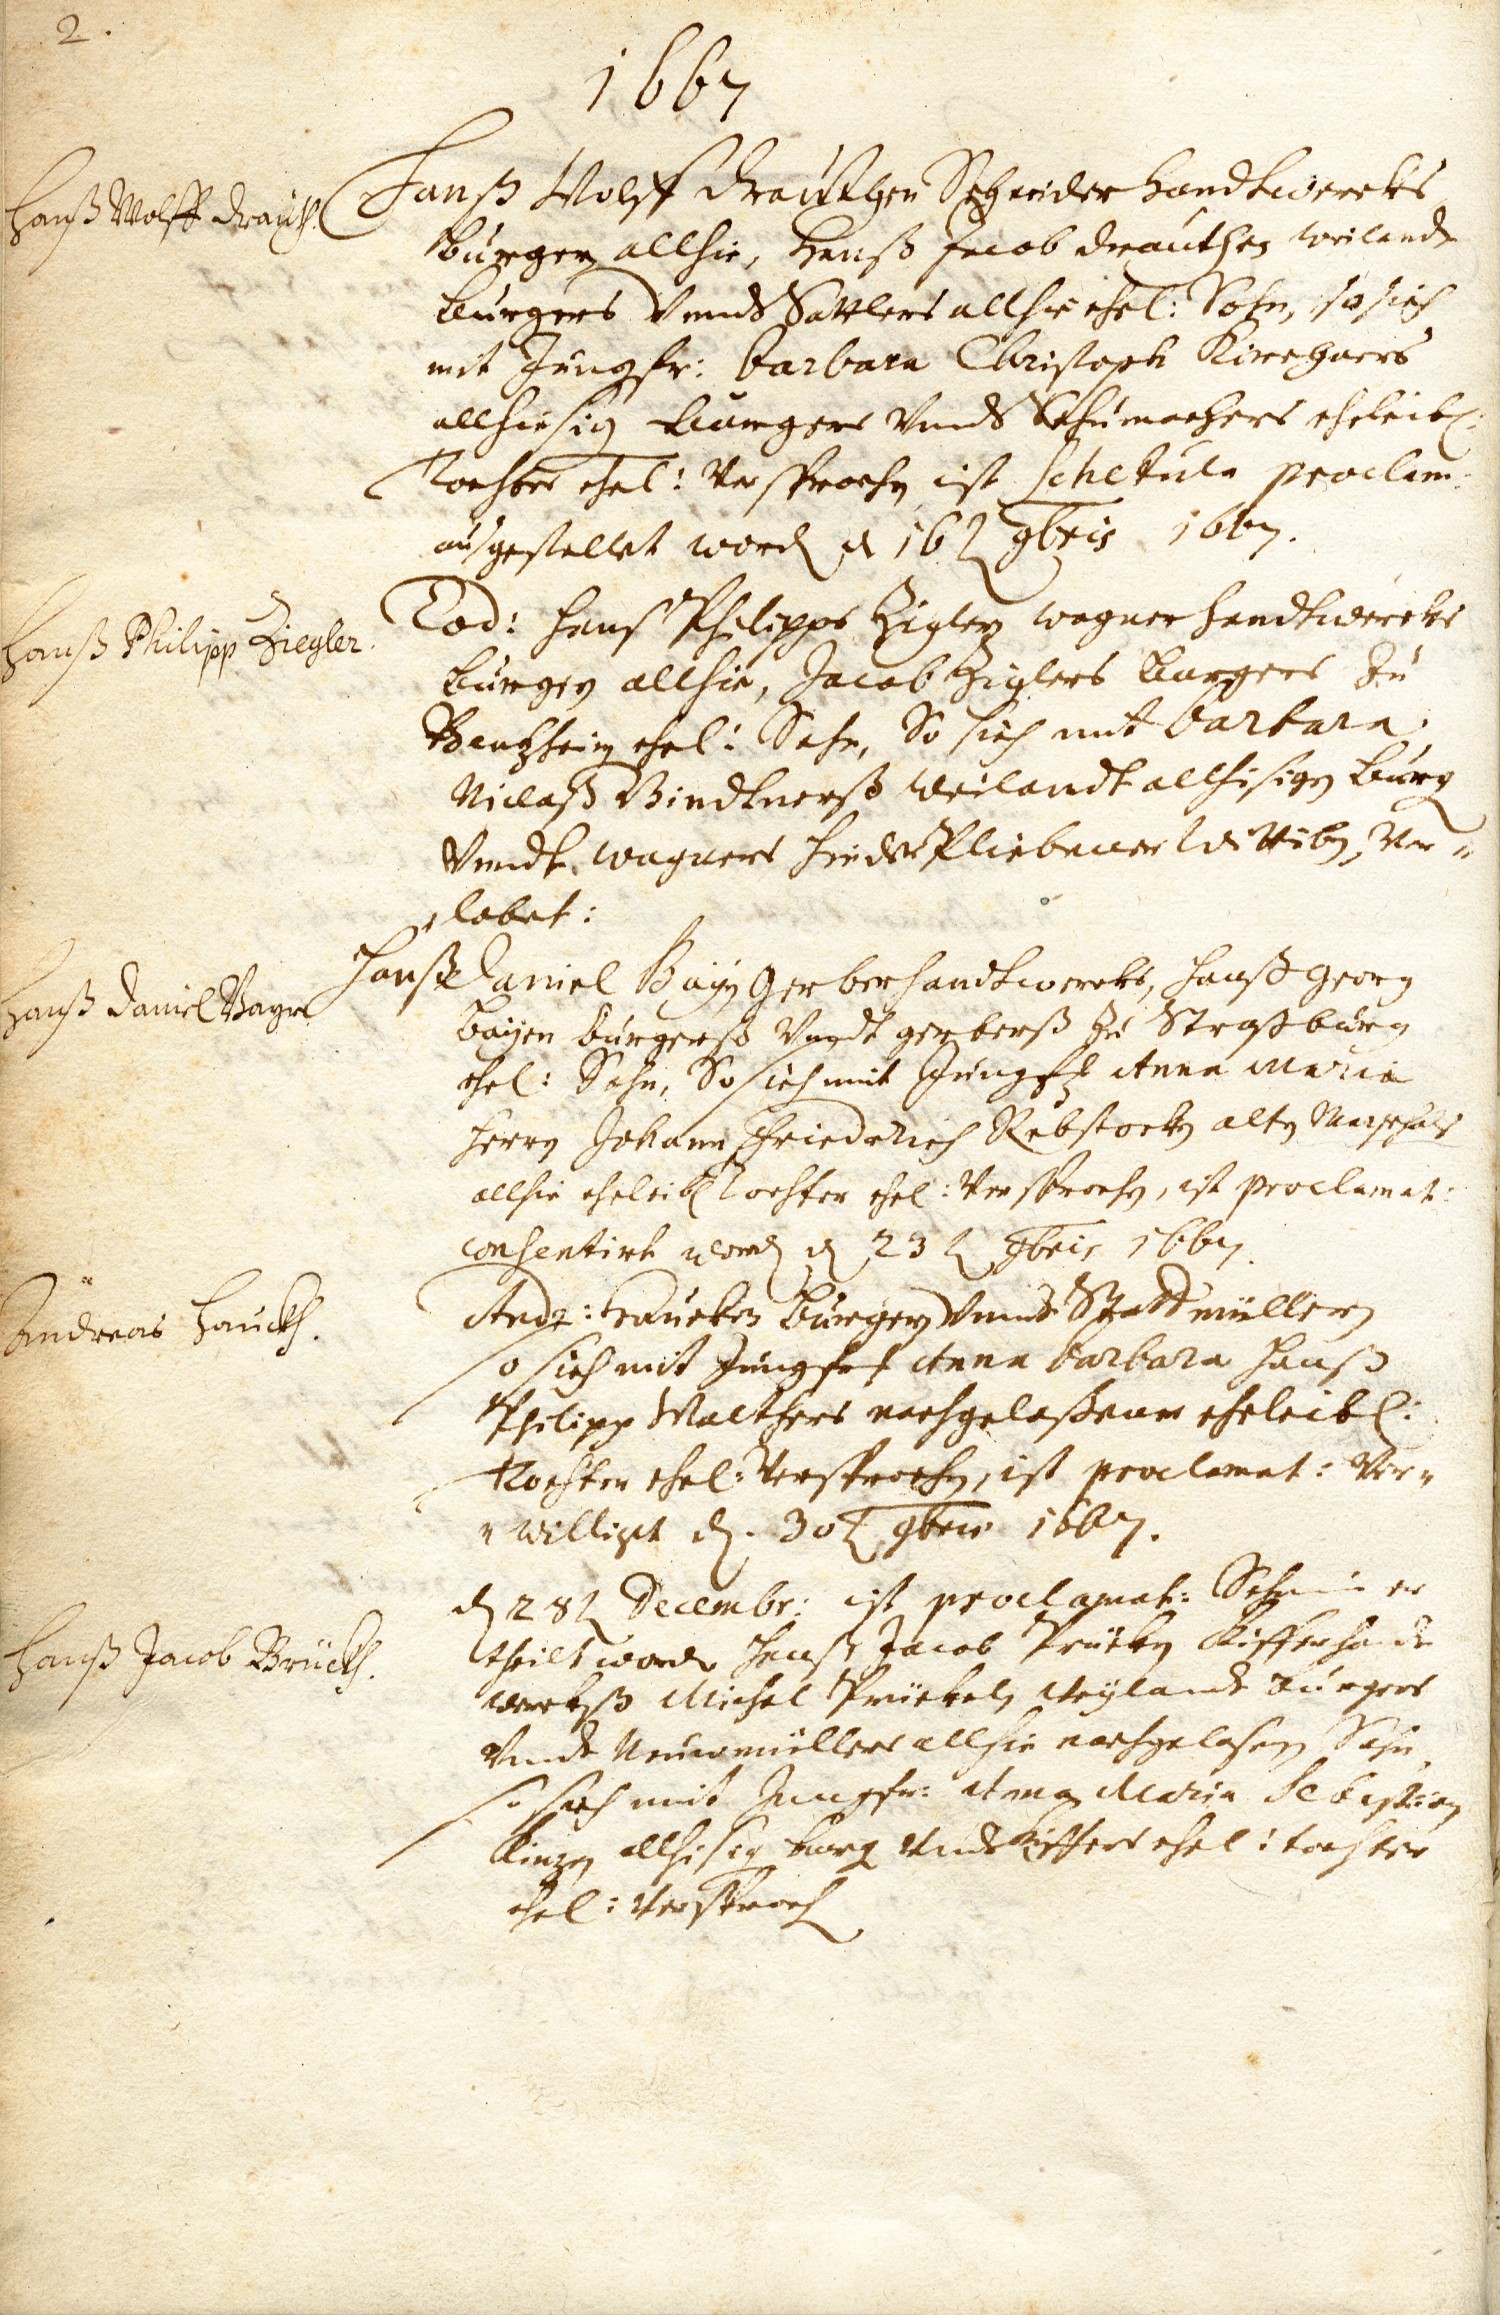 2.
1667
Hanß Wolff Drauth.
Hanß Wolff Drauthen Schneider handtwercks
burgern allhie, Hanß Jacob Drauthen weilandt
Burgers Vnndt Sattlers allhie ehel: Sohn, so sich
mit Jungfr: Barbara Christoph Kirchners
allhiesig Burgers Vnndt Schumachers eheleibl:
Tochter ehel: Versprochen ist Schetula proclam:
außgestellet word d 16 9bris 1667.
Hanß Philipp Ziegler.
Eod: Hanß Philipps Ziglern wagner handtwercks
Burgern allhie, Jacob Ziglers Burgers Zu
ehel: Sohn, So sich mit Barbara
Niclaß Bindtnerß weilandt allhisigen Burg
Vnndt wagners hinderpliebener Wittiben, Ver-
lobet:
Hanß Daniel Bayr
Hanß Daniel Bayen Gerber handtwercks, Hanß Georg
Bayen burgerß Vnndt gerberß zu Straßburg
ehel: Sohn, So sich mit Jungfr Anna Maria
Herrn Johann Friedrich Rebstocks alten Marschalls
allhie eheleibl Tochter ehel: Versprochen, ist proclamat:
consentirt word d 23 9bris 1667.
Andreas Hauckh.
Andr: Haucken burgern Vnndt Stattmüllern
so sich mit Jungfr Anna Barbara Hanß
Philipp Walthers nachgelaßener eheleibl:
Tochter ehel: Versprochen, ist proclamat: Ver-
williget d. 30 9bris 1667.
Hanß Jacob Brückh.
d 28 Decembr: ist proclamat: Schein er
theilt worde Hanß Jacob Prücken Kiffer handt
werckß Michel Prückels weylandt Burgers
Vnndt Neuwmüllers allhie nachgelasen Sohn
so sich mit Jungfr: Anna Maria Sebastian
Kinzen allhisig burg Vnndt Kiffers ehel: tochter
ehel: Versproch